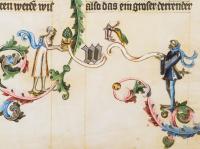 ren werde wir also das ein groser derrender